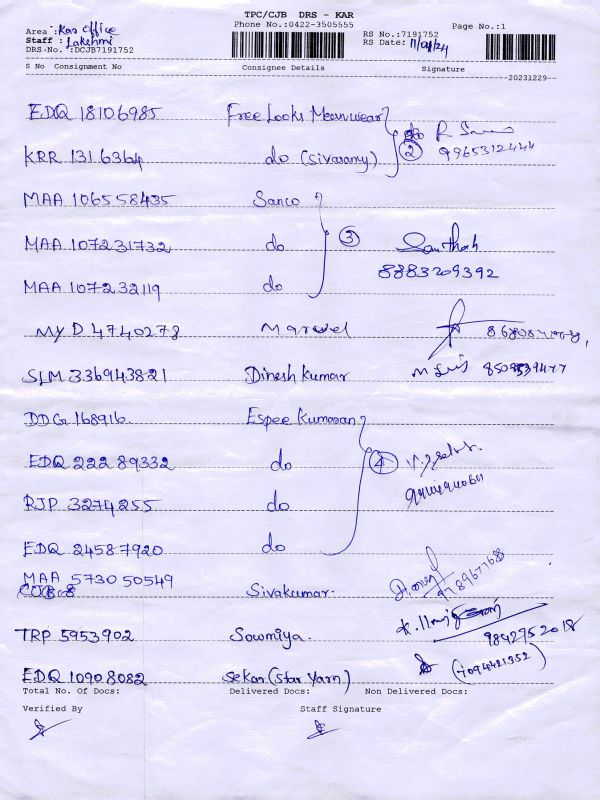 TPC/CJB DRS - KAR
Area : Kar Office Phone No.:0422-3505555 RS No.:7191752 Page No.:1
Staff : Lakshmi RS Date: 11/01/24
DRS-No. :DCJB7191752
S No Consignment No Consignee Details Signature
20231229
EDQ 18106985 Free Looks Mean wear
KRR 1316364 do (Sivasamy) 2 9965312444
MAA 106558435 Sanco
MAA 107231732 do 3 Santhosh
MAA 107232119 do 8883209392
MYD 4740278 Marvel
SLM 336943821 Dinesh Kumar
DDG 168916 Espee Kumaran
EDQ 222 89332 do 4
RJP 3274255 do
EDQ 24587920 do
MAA 573050549
Sivakumar
TRP 5953902 Sowmiya. 9842752018
EDQ 10908082 Sekar (Star Yarn)
Total No. Of Docs: Delivered Docs: Non Delivered Docs:
Verified By Staff Signature